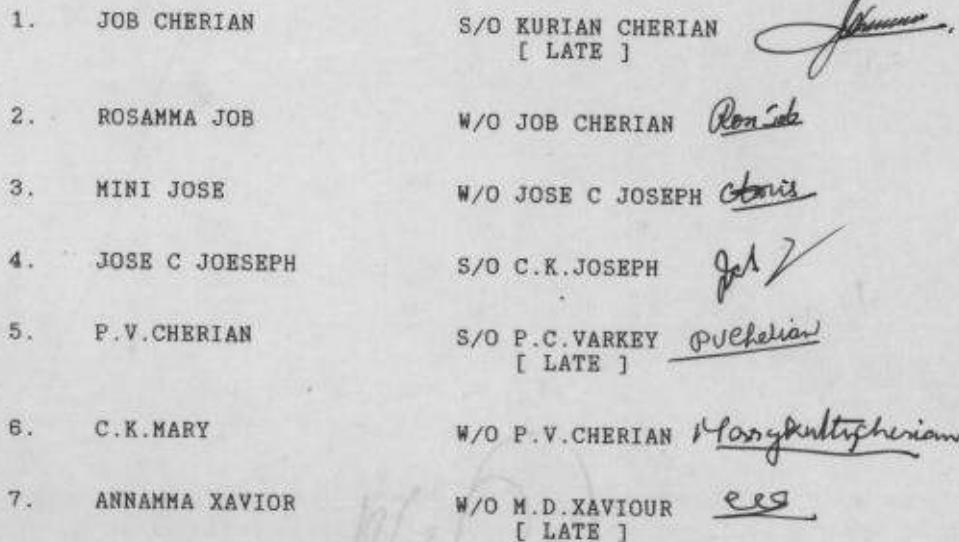 1. JOB CHERIAN S/O KURIAN CHERIAN
[ LATE ]
2. ROSAMMA JOB W/O JOB CHERIAN
3. MINI JOSE W/O JOSE C JOSEPH
4. JOSE C JOESEPH S/O C.K.JOSEPH
5. P.V.CHERIAN S/O P.C.VARKEY PVCherian
[ LATE ]
6. C.K.MARY W/O P.V.CHERIAN
7. ANNAMMA XAVIOR W/O M.D.XAVIOUR
[ LATE ]